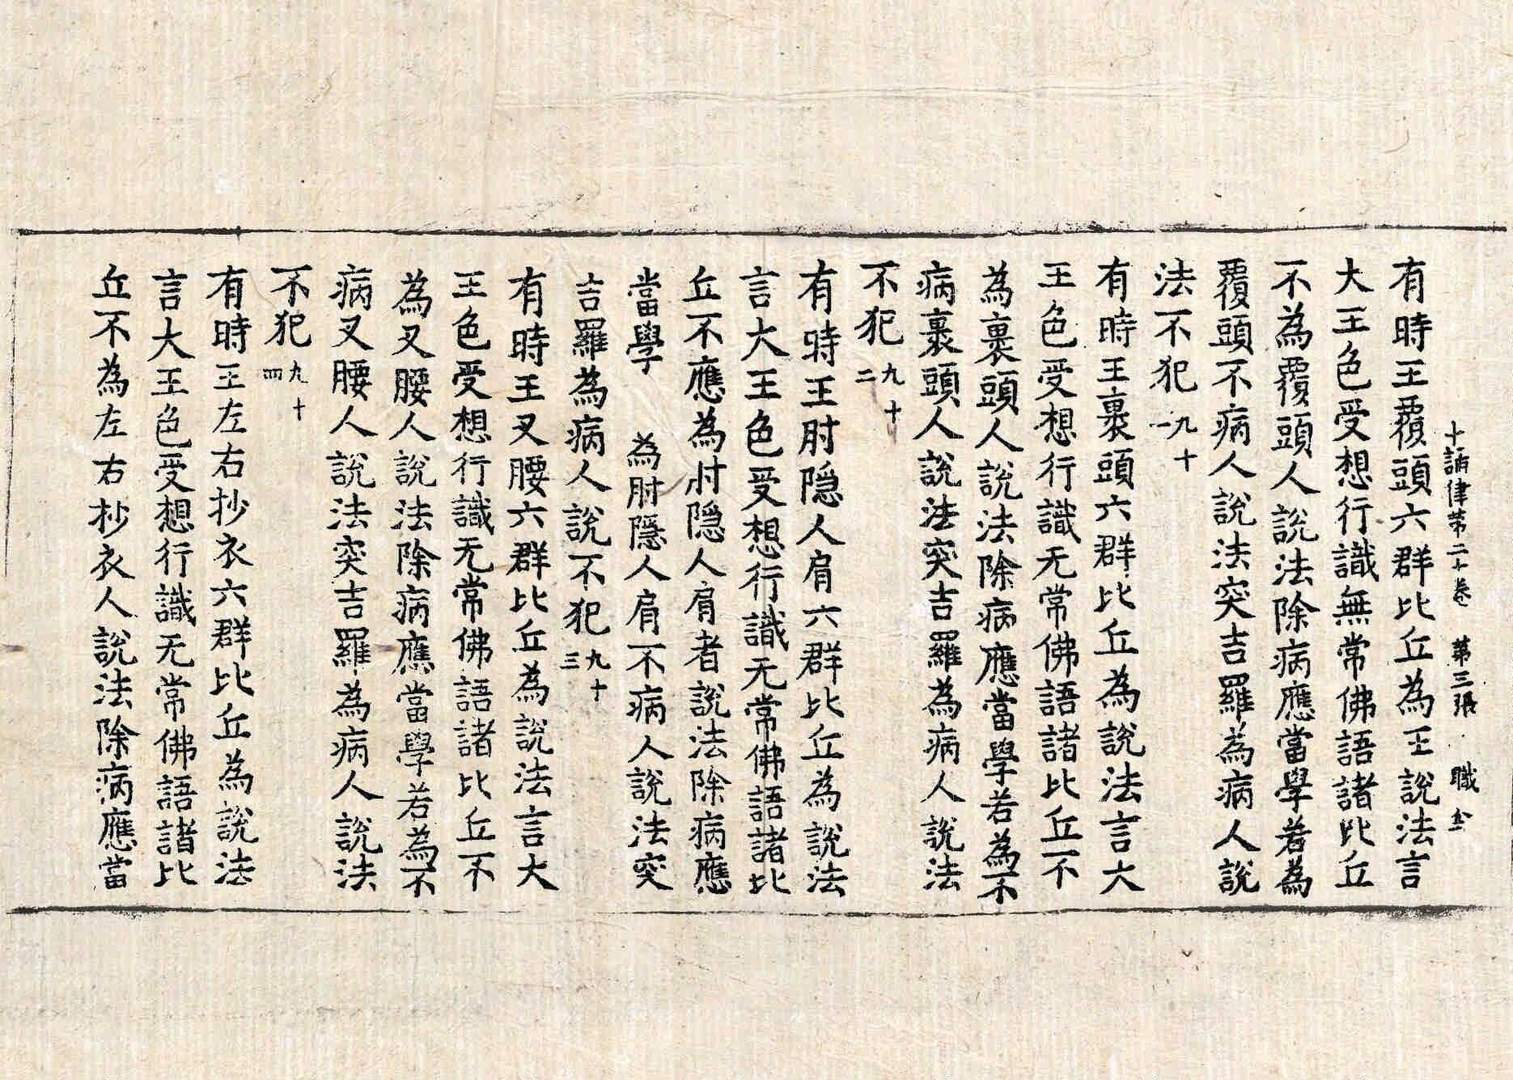 十誦律第二十卷 第三張 職
有時王覆頭六群比丘為王說法言
大王色受想行識無常佛語諸比丘
不為覆頭人說法除病應當學若為
覆頭不病人說法突吉羅為病人說
法不犯九十一
有時王裹頭六群比丘為說法言大
王色受想行識无常佛語諸比丘不
為裹頭人說法除病應當學若為不
病裹頭人說法突吉羅為病人說法
不犯九十二
有時王肘隱人肩六群比丘為說法
言大王色受想行識无常佛語諸比
丘不應為肘隱人肩者說法除病應
當學 為肘隱人肩不病人說法突
吉羅為病人說不犯九十三
有時王叉腰六群比丘為說法言大
王色受想行識无常佛語諸比丘不
為叉腰人說法除病應當學若為不
病叉腰人說法突吉羅為病人說法
不犯九十四
有時王左右抄衣六群比丘為說法
言大王色受想行識无常佛語諸比
丘不為左右抄衣人說法除病應當